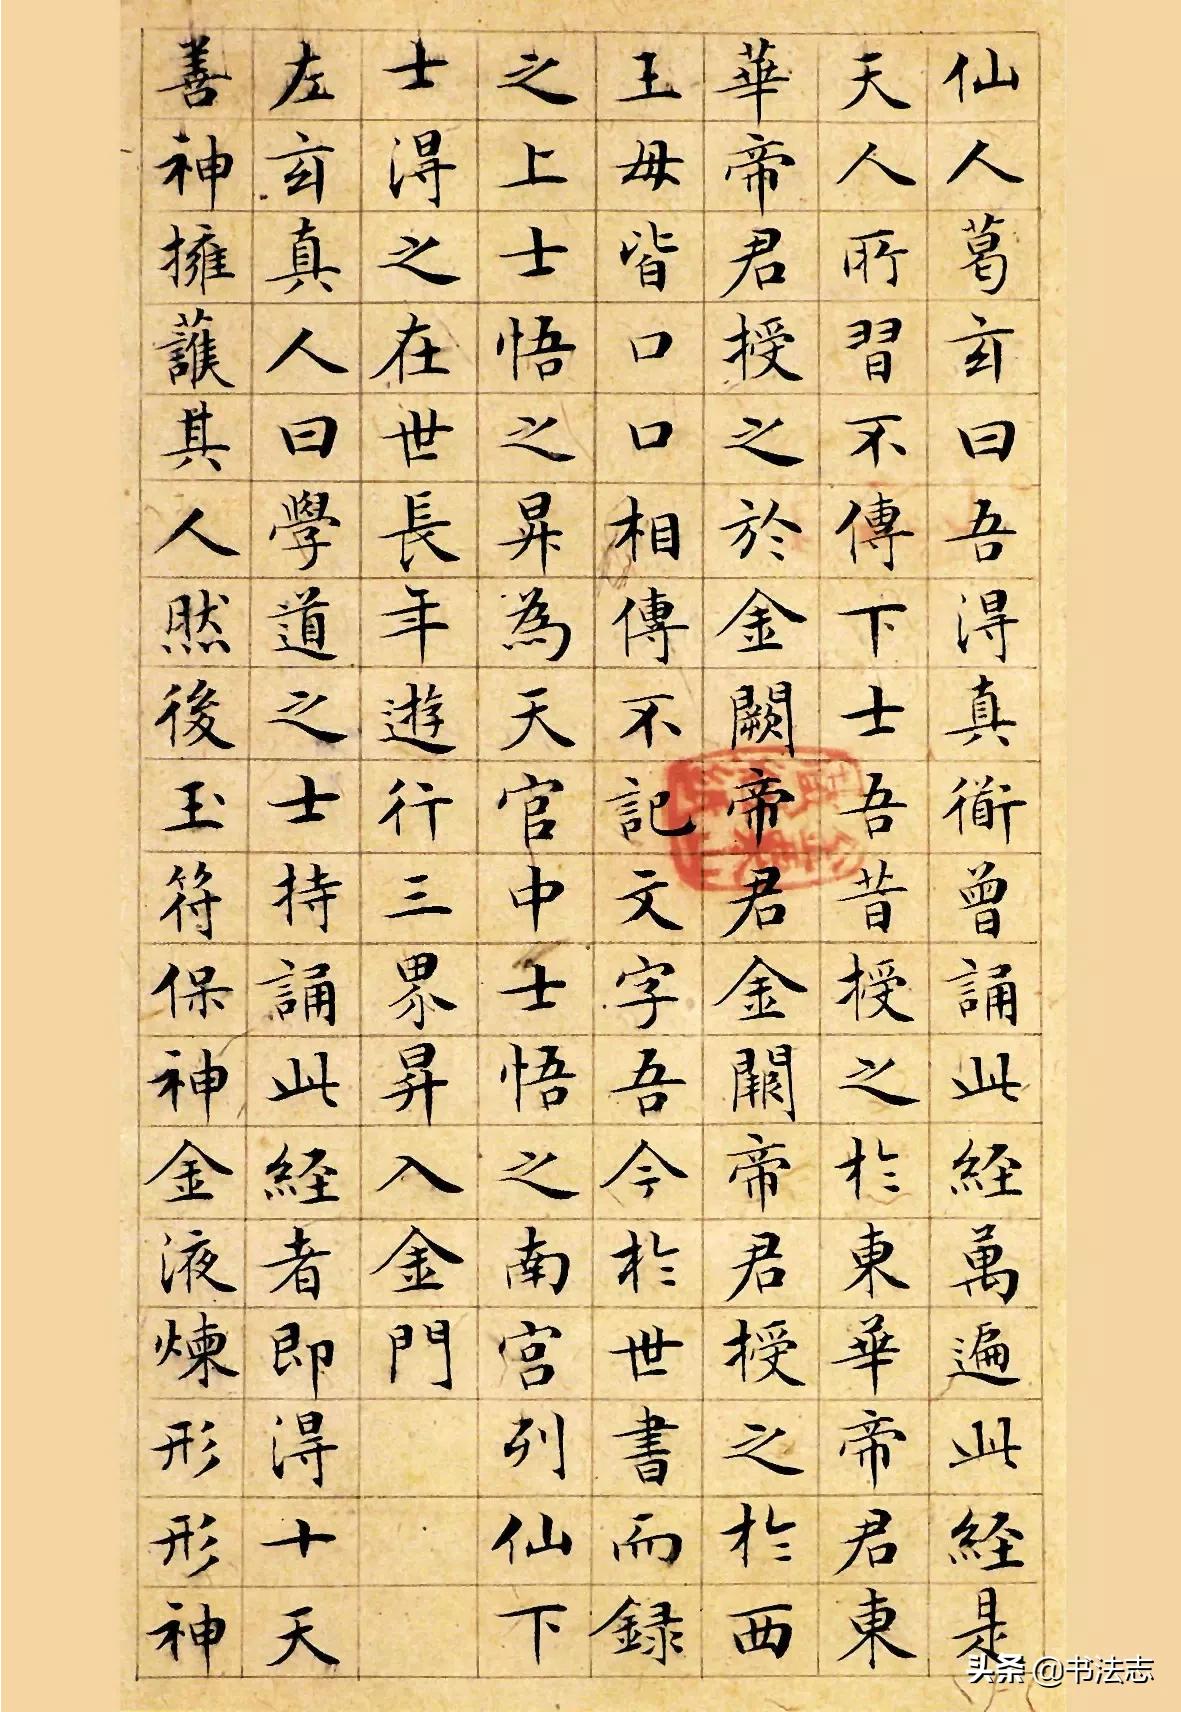 仙人葛玄曰吾得真衜曾誦此經萬遍此經是
天人所習不傳下士吾昔授之於東華帝君東
華帝君授之於金闕帝君金闕帝君授之於西
王母皆口口相傳不記文字吾今於世書而録
之上士悟之昇為天官中士悟之南宮列仙下
士得之在世長年遊行三界昇入金門
左玄真人曰學道之士持誦此経者即得十天
善神擁護其人然後玉符保神金液煉形形神
头条 @书法志